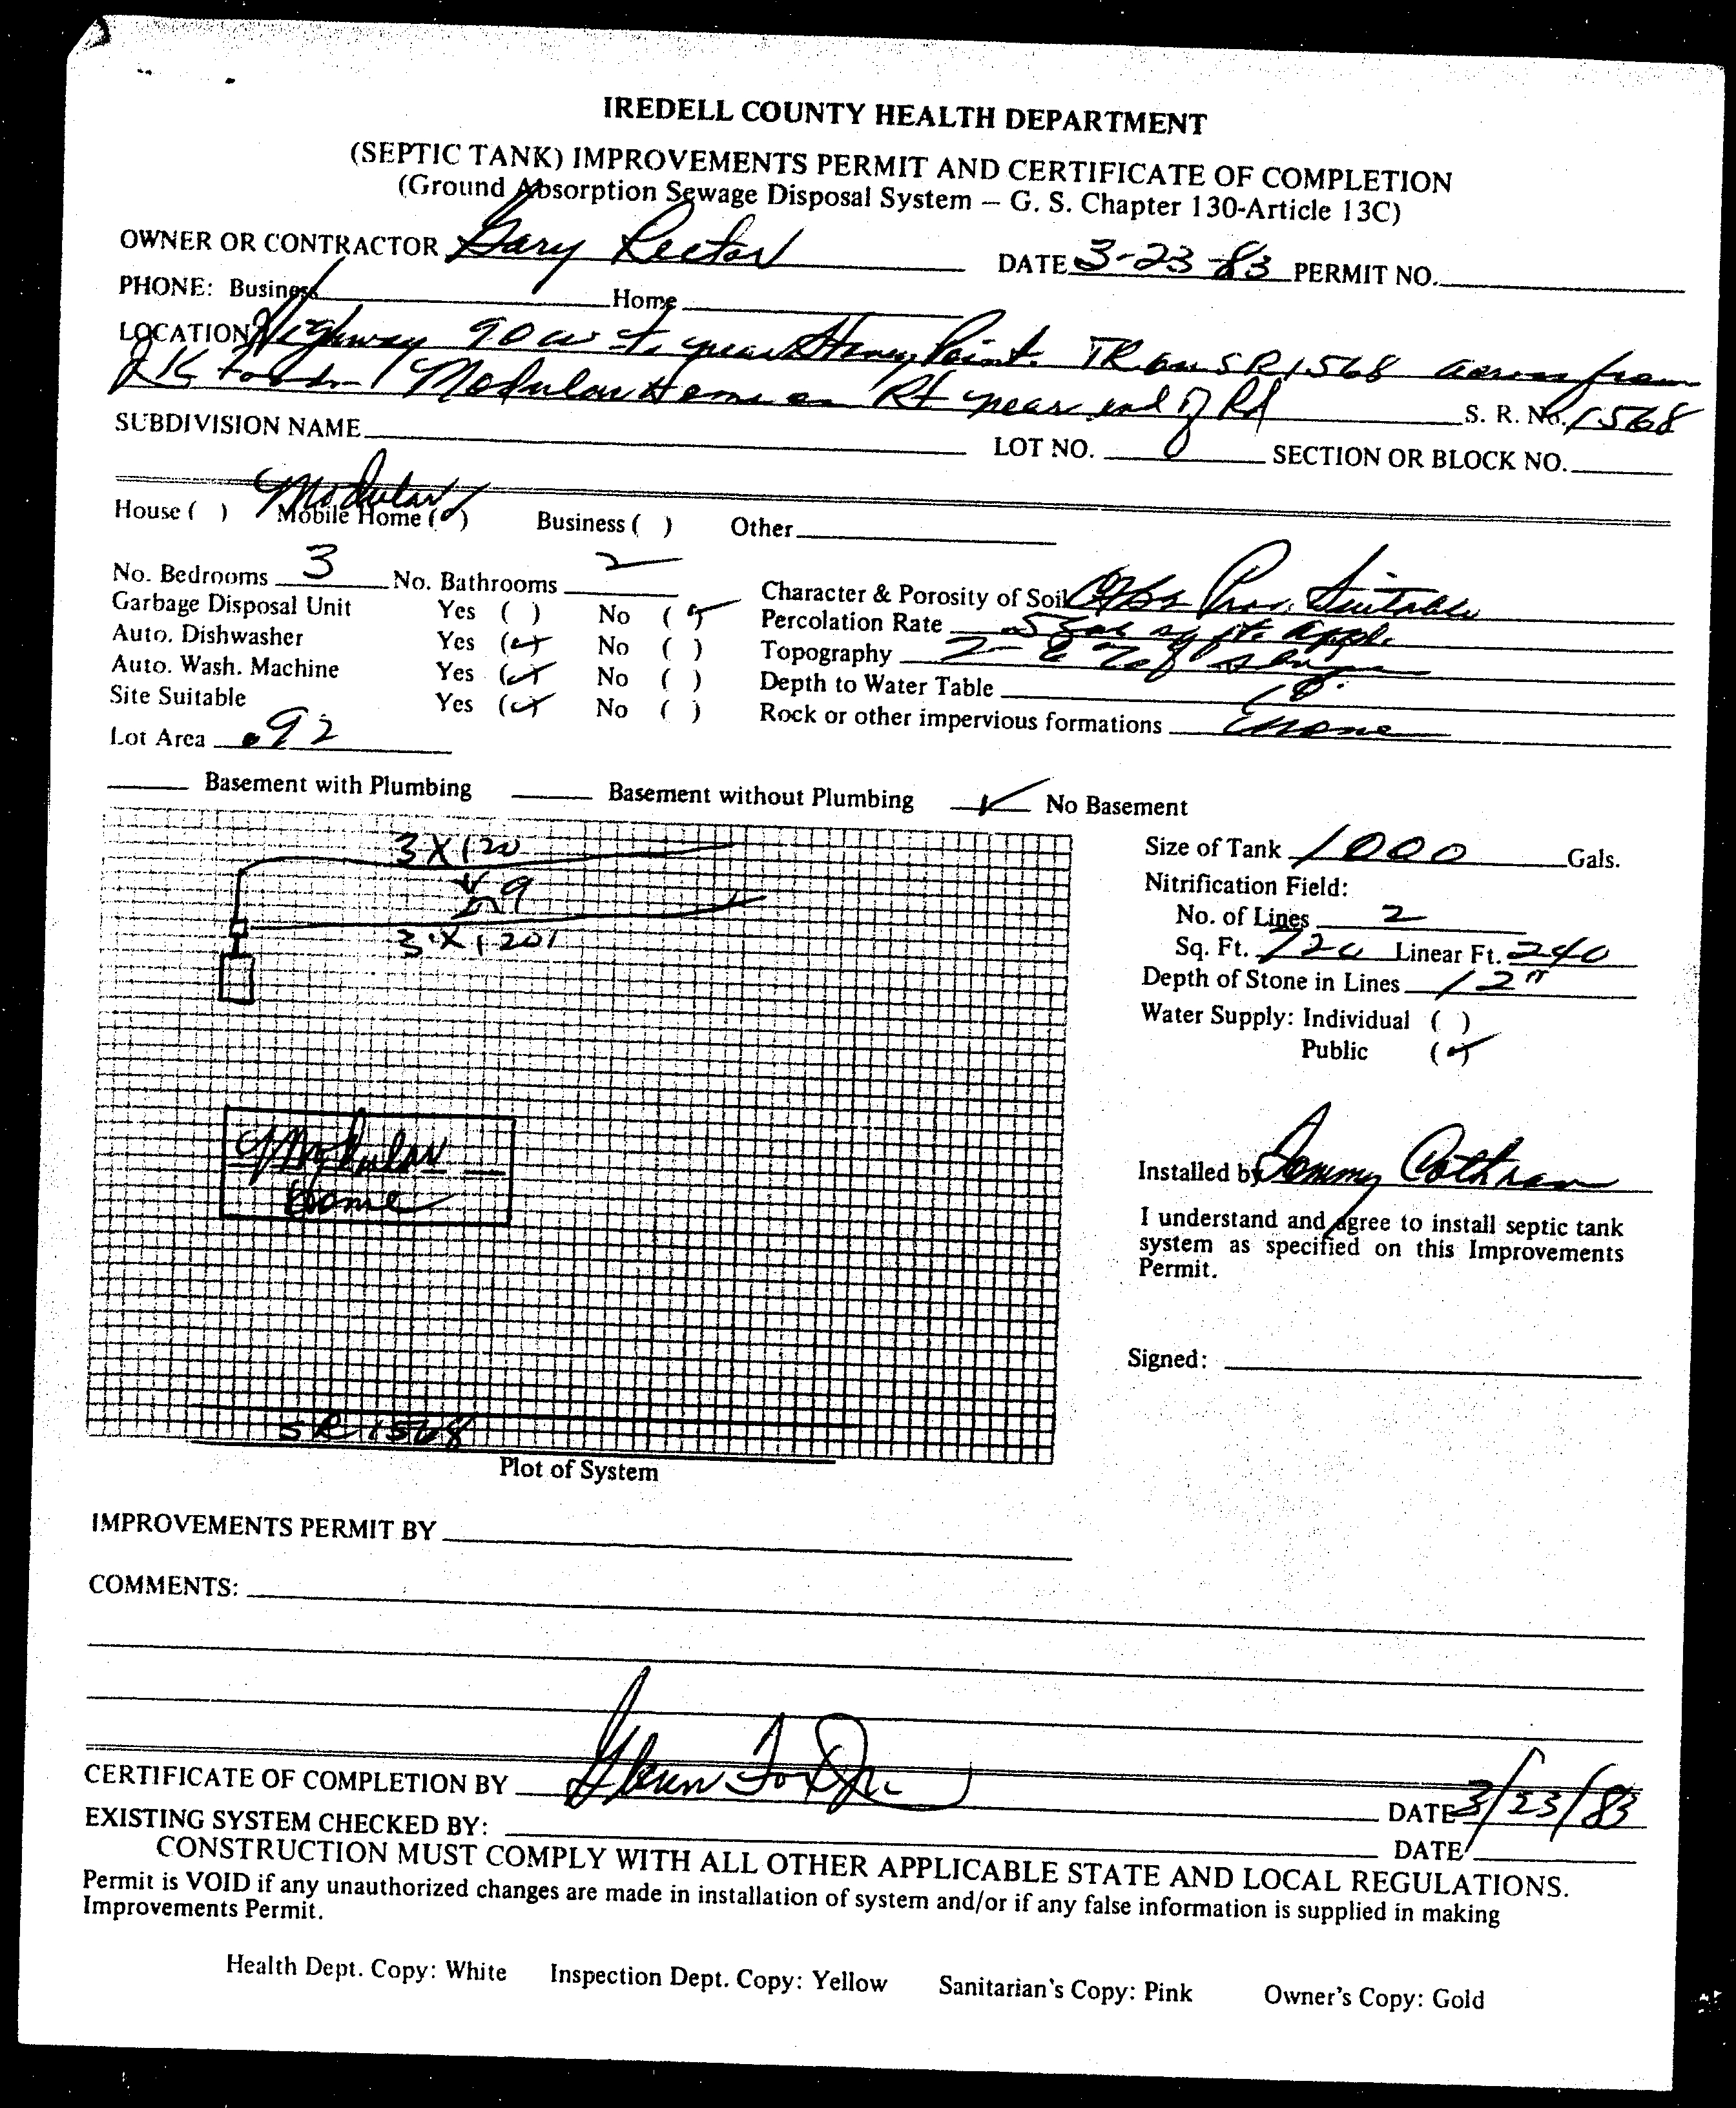 IREDELL COUNTY HEALTH DEPARTMENT
(SEPTIC TANK) IMPROVEMENTS PERMIT AND CERTIFICATE OF COMPLETION
(Ground Absorption Sewage Disposal System — G. S. Chapter 130-Article 13C)
OWNER OR CONTRACTOR Gary Rector DATE 3-23-83 PERMIT NO.
PHONE: Business Home
LOCATION Highway 90 W to near Stoney Point. TR on SR 1568 across from
Modular Home on Rt near end of Rd S. R. No. 1568
SUBDIVISION NAME LOT NO. SECTION OR BLOCK NO.
Modular
House ( ) Mobile Home (✓) Business ( ) Other
No. Bedrooms 3 No. Bathrooms 2 Character & Porosity of Soil Prov. Suitable
Garbage Disposal Unit Yes ( ) No (✓) Percolation Rate .5 gal sq ft. appl.
Auto. Dishwasher Yes (✓) No ( ) Topography 2-6 % slope
Auto. Wash. Machine Yes (✓) No ( ) Depth to Water Table
Site Suitable Yes (✓) No ( ) Rock or other impervious formations none
Lot Area .92
Basement with Plumbing Basement without Plumbing ✓ No Basement
3 X 120
9
3 X 120'
Modular
Home
SR 1568
Plot of System
Size of Tank 1000 Gals.
Nitrification Field:
No. of Lines 2
Sq. Ft. 720 Linear Ft. 240
Depth of Stone in Lines 12"
Water Supply: Individual ( )
Public (✓)
Installed by Tommy Cothran
I understand and agree to install septic tank
system as specified on this Improvements
Permit.
Signed:
IMPROVEMENTS PERMIT BY
COMMENTS:
CERTIFICATE OF COMPLETION BY Glenn DATE 3/23/83
EXISTING SYSTEM CHECKED BY: DATE
CONSTRUCTION MUST COMPLY WITH ALL OTHER APPLICABLE STATE AND LOCAL REGULATIONS.
Permit is VOID if any unauthorized changes are made in installation of system and/or if any false information is supplied in making
Improvements Permit.
Health Dept. Copy: White Inspection Dept. Copy: Yellow Sanitarian's Copy: Pink Owner's Copy: Gold